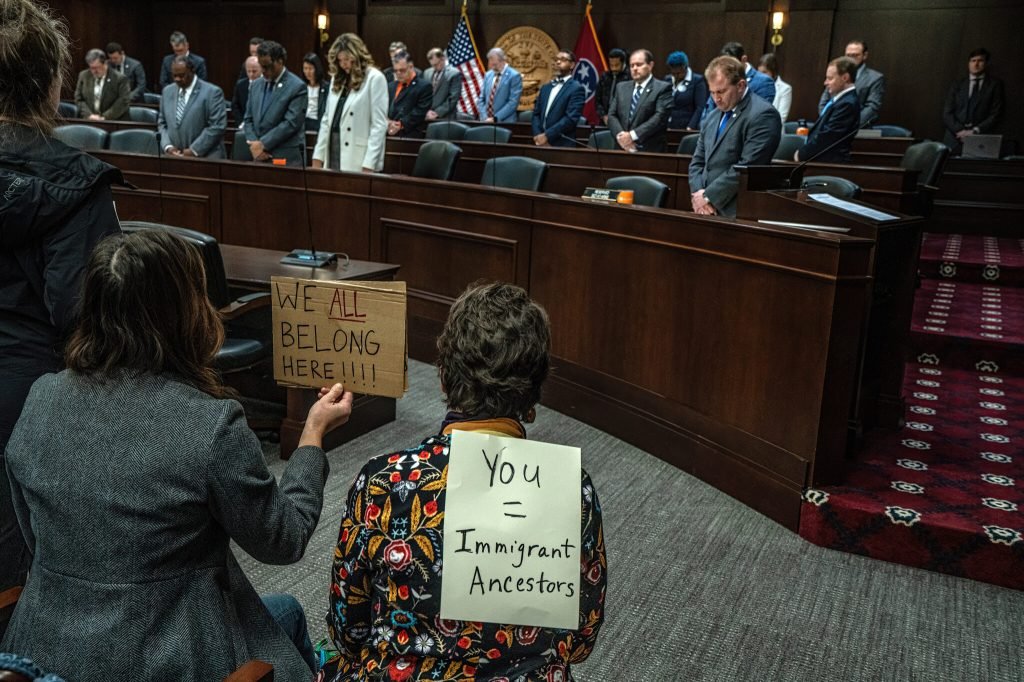 WE ALL
BELONG
HERE!!!!
You
=
Immigrant
Ancestors